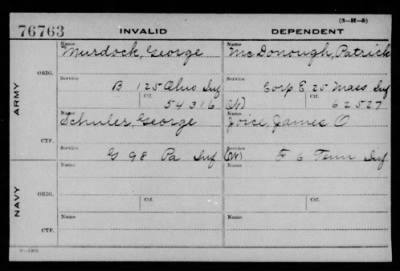 (3-H-5)
76763 INVALID DEPENDENT
Name Name
Murdock, George McDonough, Patrick
ARMY
ORIG.
Service Service
B 125 Ohio Inf Corp E 25 Mass Inf
Ctf. Ctf.
54316 (W) 62527
CTF.
Name Name
Schuler, George Joice, James O
Service Service
G 98 Pa Inf (W) F 6 Tenn Inf
NAVY
ORIG.
Name Name
Ctf. Ctf.
CTF.
Name Name